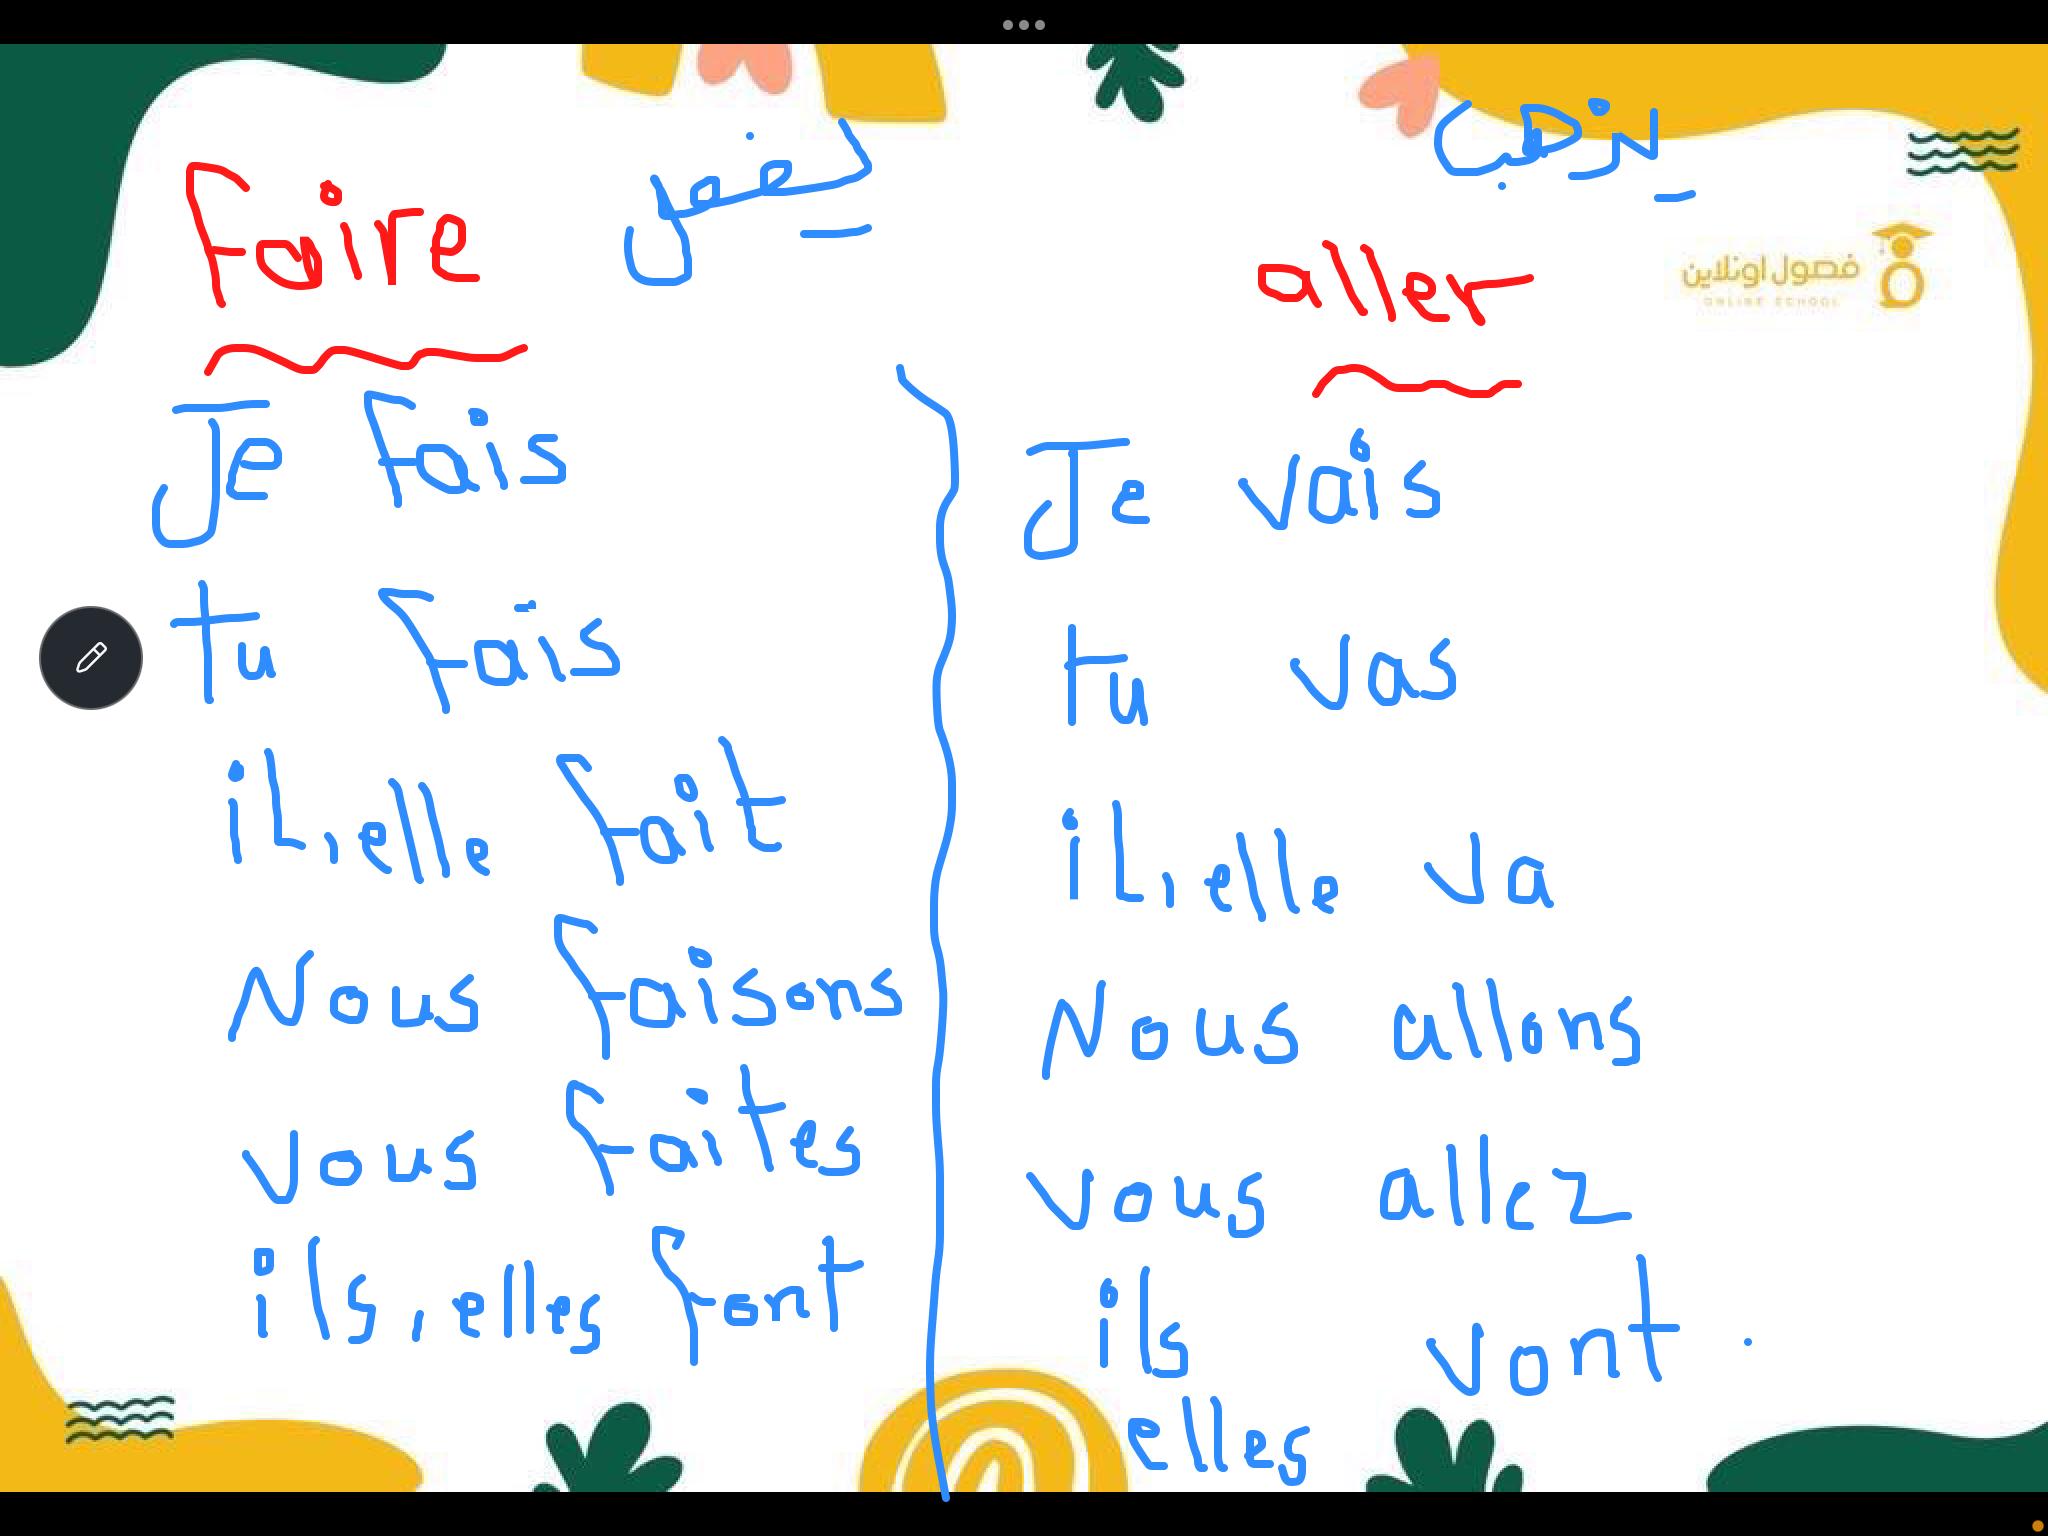 يذهب
Faire يفعل
aller
فصول اونلاين
ONLINE SCHOOL
Je Fais
tu Fais
il, elle fait
Nous faisons
vous faites
ils, elles font
Je vais
tu vas
il, elle va
Nous allons
vous allez
ils vont .
elles